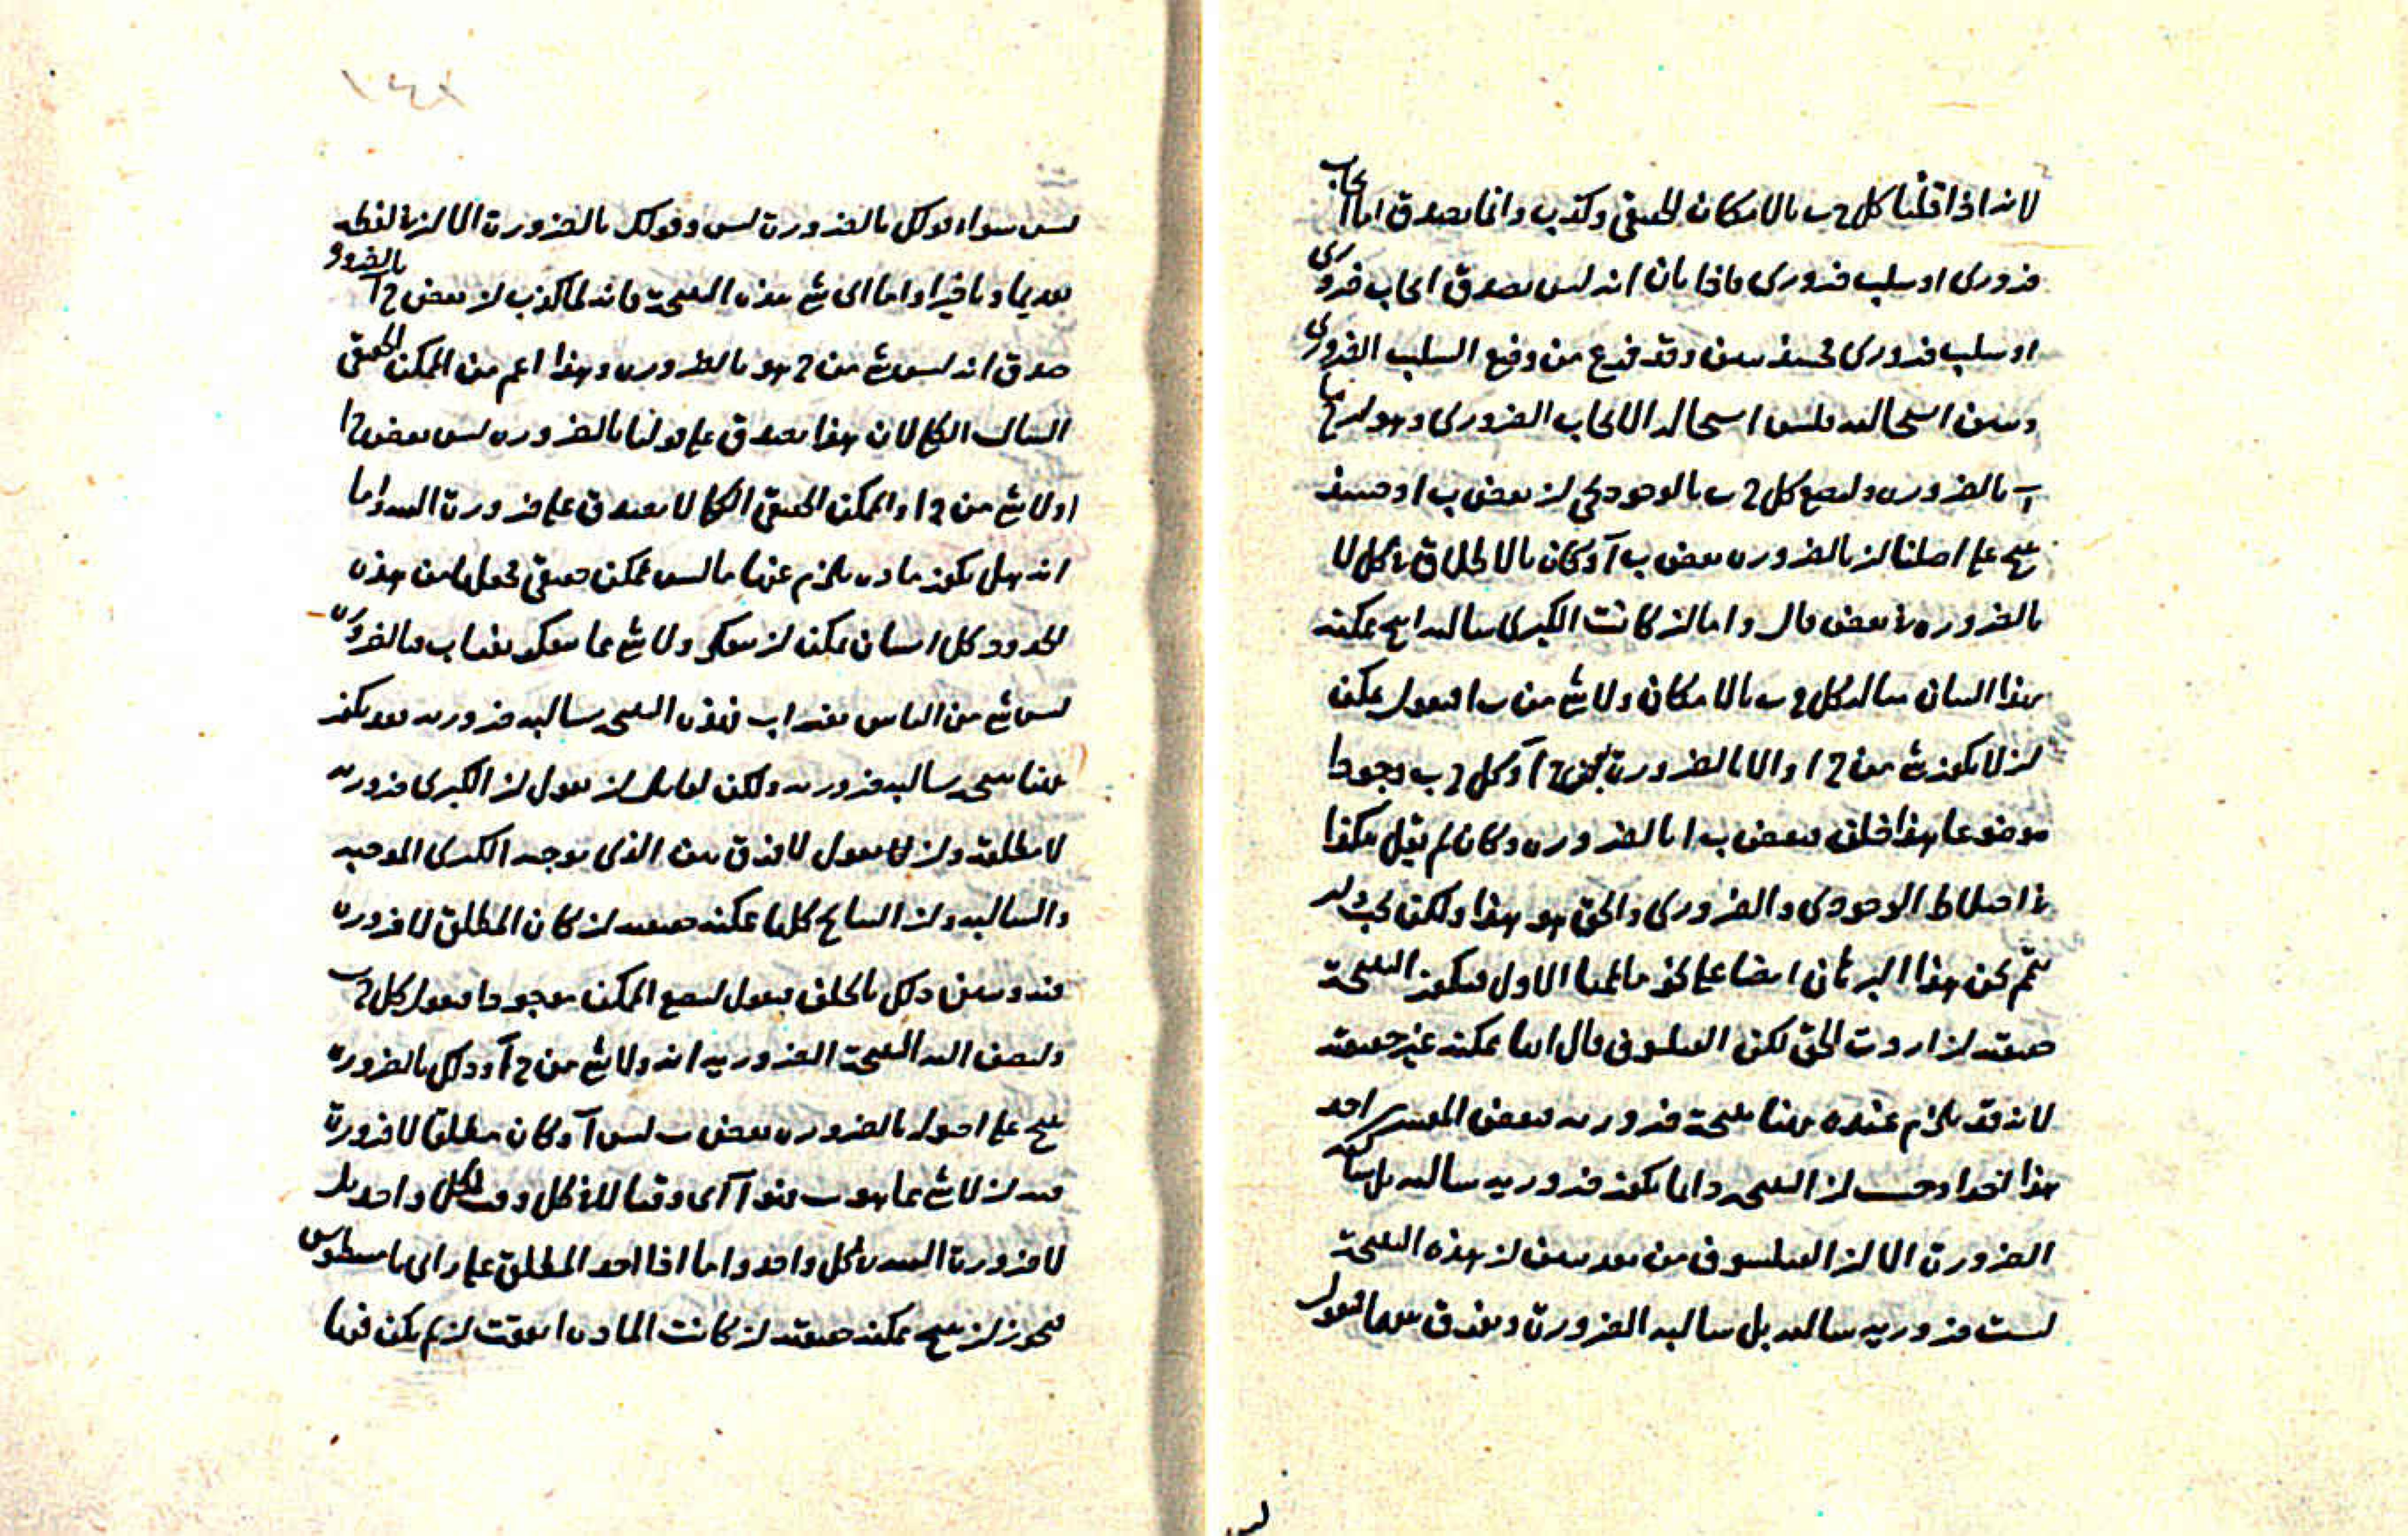 لانه اذا قلنا كل ج ب بالامكان الحقيقي وكذب وانما يصدق اما ايجاب
ضروري او سلب ضروري فاذا بان انه ليس يصدق ايجاب ضروري
او سلب ضروري فحينئذ يبين وقد فرغ من وضع السلب الضروري
وبين استحالته فليبين استحالة الايجاب الضروري وهو ان ج ما
آ بالضرورة وليضع كل ج ب بالوجود حتى ان بعض ب ا وحينئذ
ينتج على اصلنا ان بالضرورة بعض ب آ وكان بالاطلاق في كل لا
بالضرورة في بعض قال واما ان كانت الكبرى سالبة انتج ممكنة
بهذا البيان مثاله كل ج ب بالامكان ولا شئ من ب ا فنقول يمكن
ان لا يكون شئ من ج ا والا بالضرورة بعض ج آ وكل ج ب وجودا
موضوعا هذا خلف فبعض ب ا بالضرورة وكان لم يقل هكذا
في اختلاط الوجودي والضروري والحق هو هذا ولكن يجب ان
نتمم نحن هذا البرهان ايضا على نحو ما تممنا الاول فيكون النتيجة
حقيقية ان اردت الحق لكن الفيلسوف قال انها ممكنة غير حقيقية
لانه قد يلزم عنده ههنا نتيجة ضرورية فبعض المفسرين اخذ
هذا اخذا وحسب ان النتيجة دائما يكون ضرورية سالبة بل سالبة
الضرورة الا ان الفيلسوف من بعد يبين ان هذه النتيجة
ليست ضرورية سالبة بل سالبة الضرورة ويفرق بينهما فيقول
ليس
١٤٨
ليس سواء قولك بالضرورة ليس وقولك بالضرورة الا ان في لفظه
تقديما وتاخيرا واما اي شئ هذه النتيجة فانه لما كذب ان بعض ج آ بالضرورة
صدق انه ليس شئ من ج هو بالضرورة وهذا اعم من الممكن الحقيقي
السالب الكلي لان هذا يصدق على قولنا بالضرورة ليس بعض ج ا
او لا شئ من ج ا والممكن الحقيقي الكلي لا يصدق على ضرورة البتة واما
انه هل يكون مادة يلزم عنها ما ليس بممكن حقيقي فحلها من هذه
الحدود كل انسان يمكن ان يتفكر ولا شئ مما يتفكر بغراب فبالضرورة
ليس شئ من الناس بغراب فهذه النتيجة سالبة ضرورية فقد يكون
ههنا نتيجة سالبة ضرورية ولكن لقائل ان يقول ان الكبرى ضرورية
لا مطلقة وان لا يقول لا فرق بين الذي يوجب الكبرى الموجبة
والسالبة وان النتائج كلها ممكنة حقيقية ان كان المطلق لا ضرورة
فيه ويبين ذلك بالخلف فيقول ليضع الممكن موجودا فنقول كل ج ب
وليضف اليه النتيجة الضرورية انه ولا شئ من ج آ وذلك بالضرورة
ينتج على اصوله بالضرورة بعض ب ليس آ وكان مطلقا لا ضرورة
فيه ان لا شئ مما هو ب فهو آ اي وقتا لا في كل وقت لكل واحد بل
لا ضرورة البتة في كل واحد واما اذا اخذ المطلق على راي ثامسطيوس
فيجوز ان ينتج ممكنة حقيقية ان كانت المادة اتفقت ان لم يكن فيها